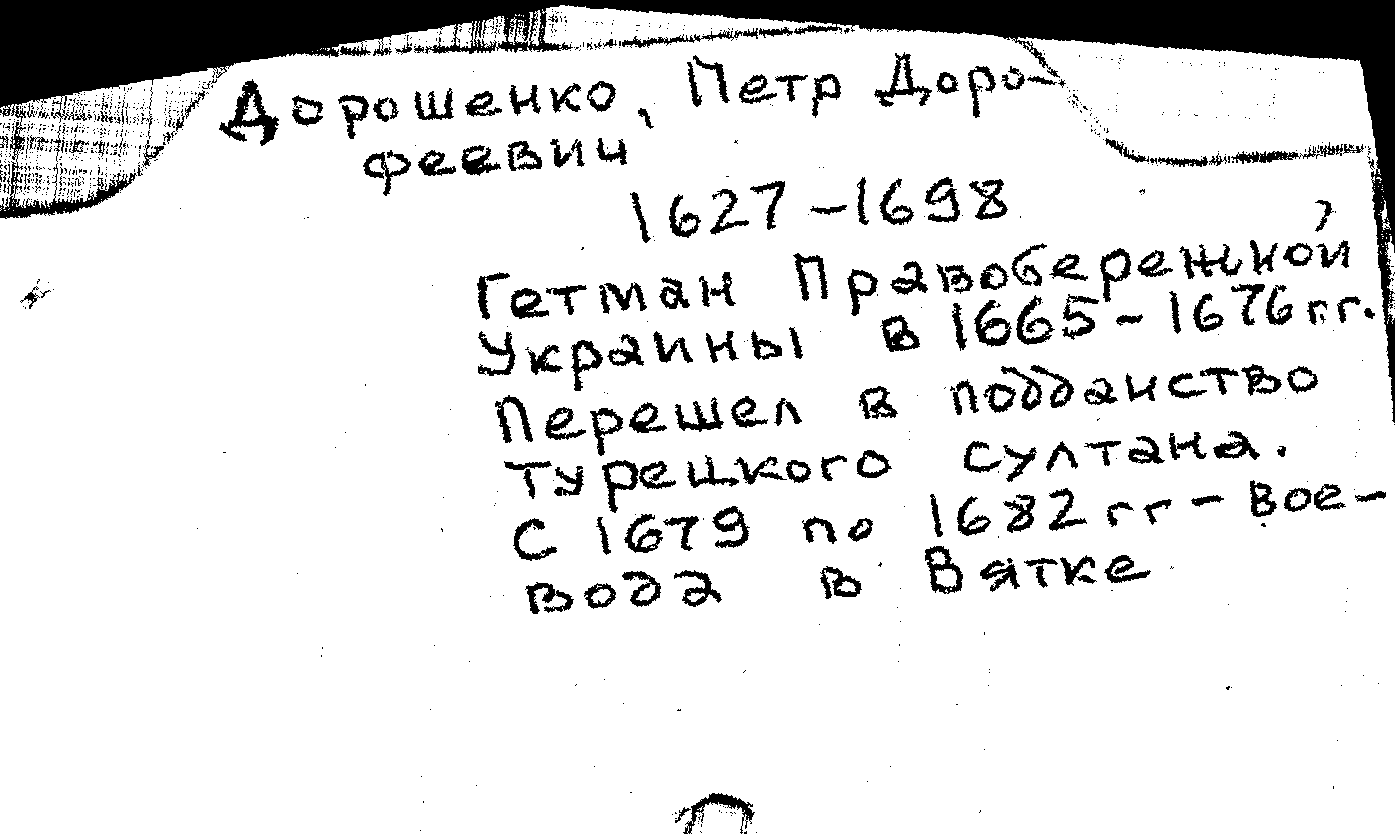 Дорошенко, Петр Доро-
феевич
1627-1698
Гетман Правобережной
Украины в 1665-1676 гг.
Перешел в подданство
турецкого султана.
С 1679 по 1682 гг - вое-
вода в Вятке